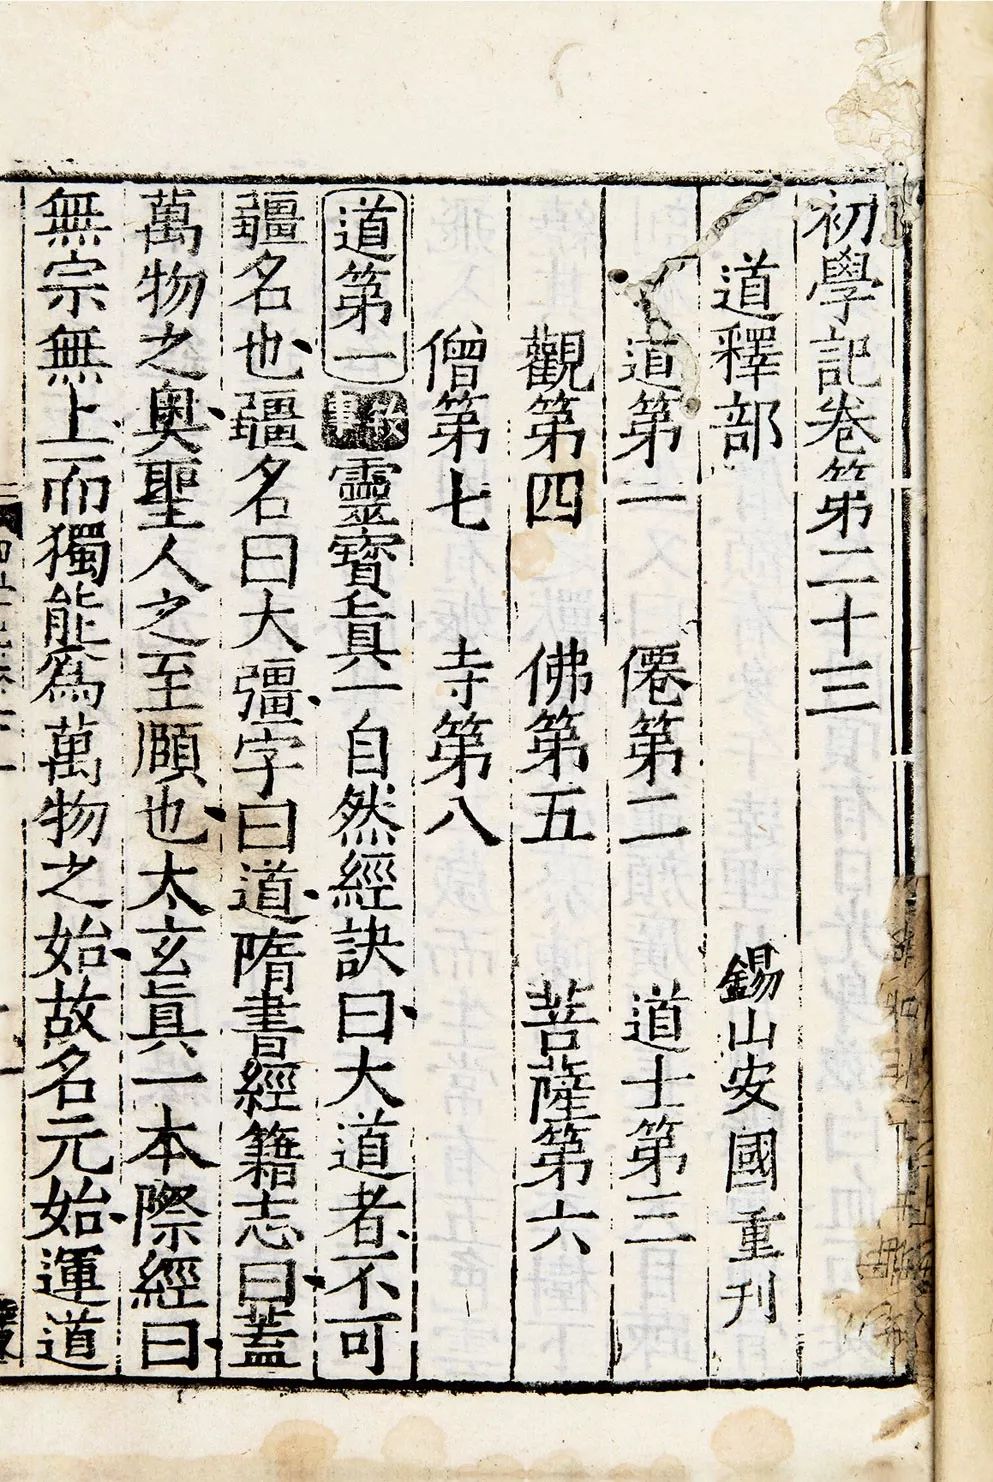 初學記卷第二十三
道釋部 錫山安國重刊
道第一 僊第二 道士第三
觀第四 佛第五 菩薩第六
僧第七 寺第八
道第一 敘事 靈寶眞一自然經訣曰大道者不可
彊名也彊名曰大彊字曰道隋書經籍志曰蓋
萬物之奧聖人之至頥也太玄眞一本際經曰
無宗無上而獨能爲萬物之始故名元始運道